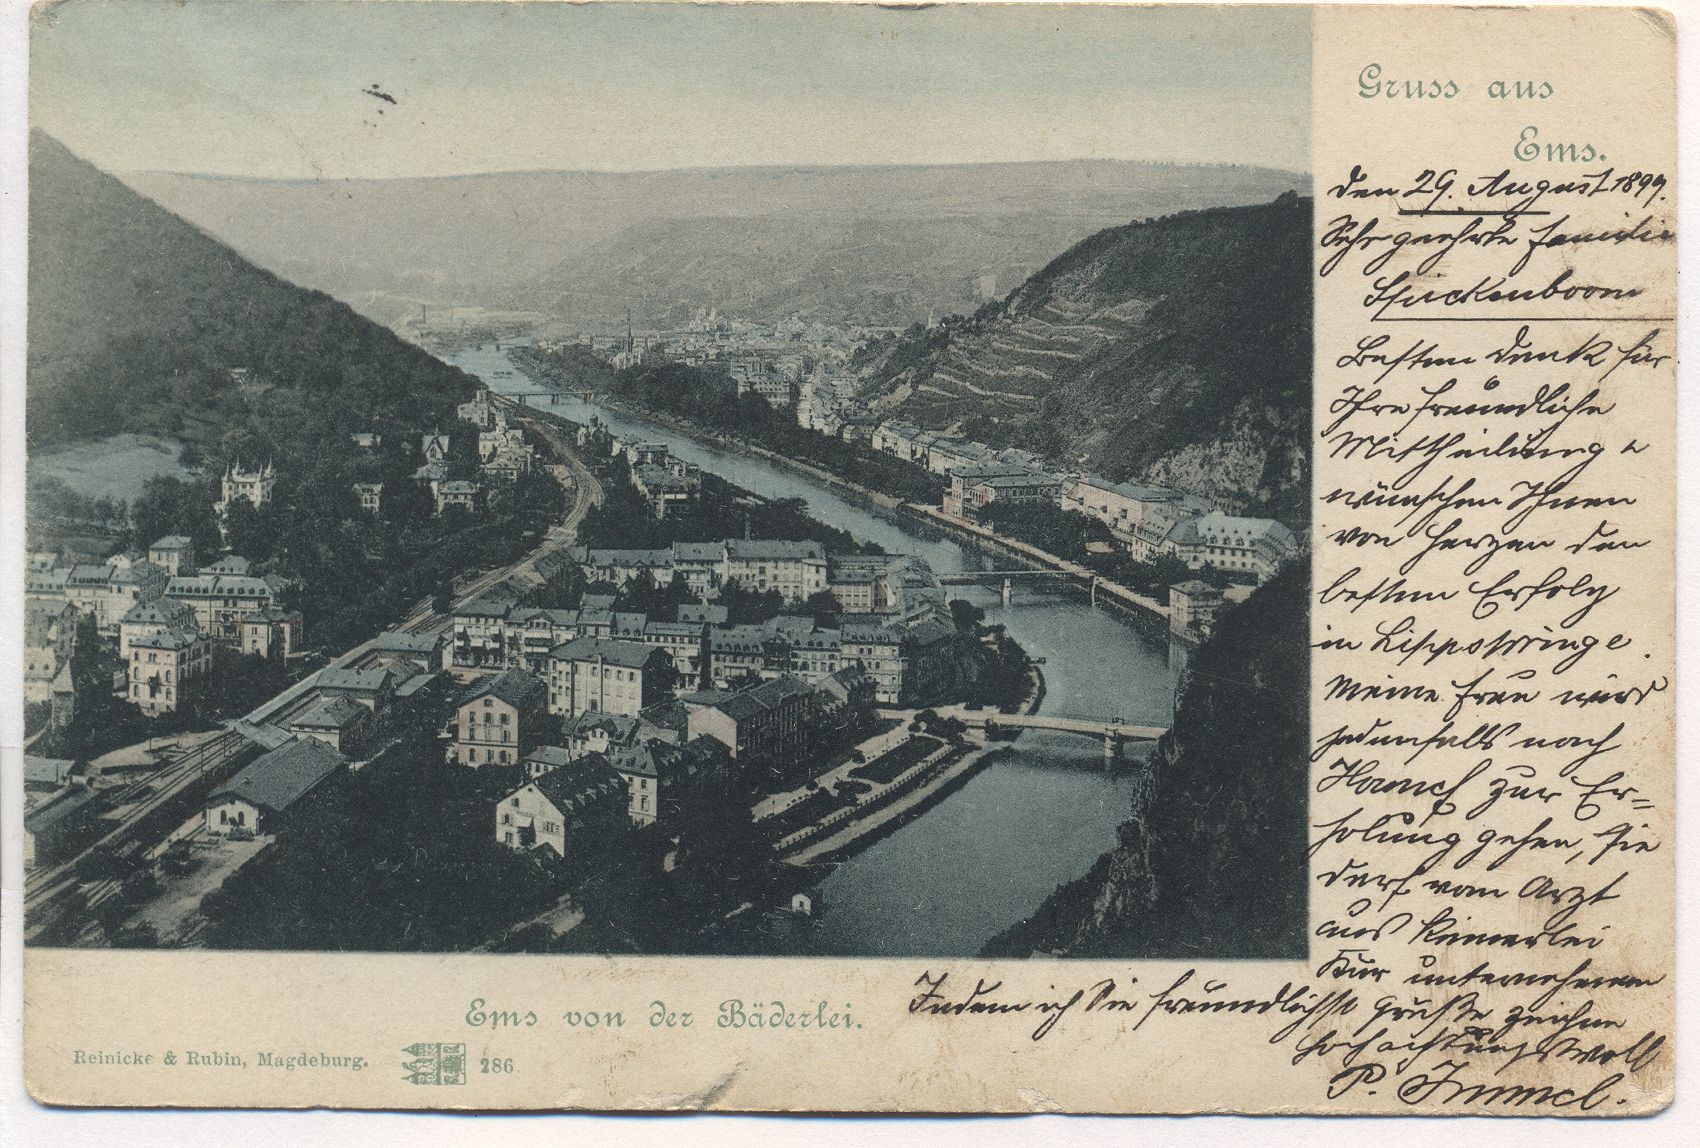 Gruss aus
Ems.
den 29. August 1899.
Sehr geehrte Familie
Stuckenboom
Besten Dank für
Ihre freundliche
Mittheilung u
wünschen Ihnen
von Herzen den
besten Erfolg
in Lippspringe.
Meine Frau wird
jedenfalls nach
zur Er=
holung gehen, sie
darf vom Arzt
aus keinerlei
Kur unternehmen
Indem ich Sie freundlichst grüße zeichne
hochachtungsvoll
P. Immel.
Ems von der Bäderlei.
Reinicke & Rubin, Magdeburg. 286.